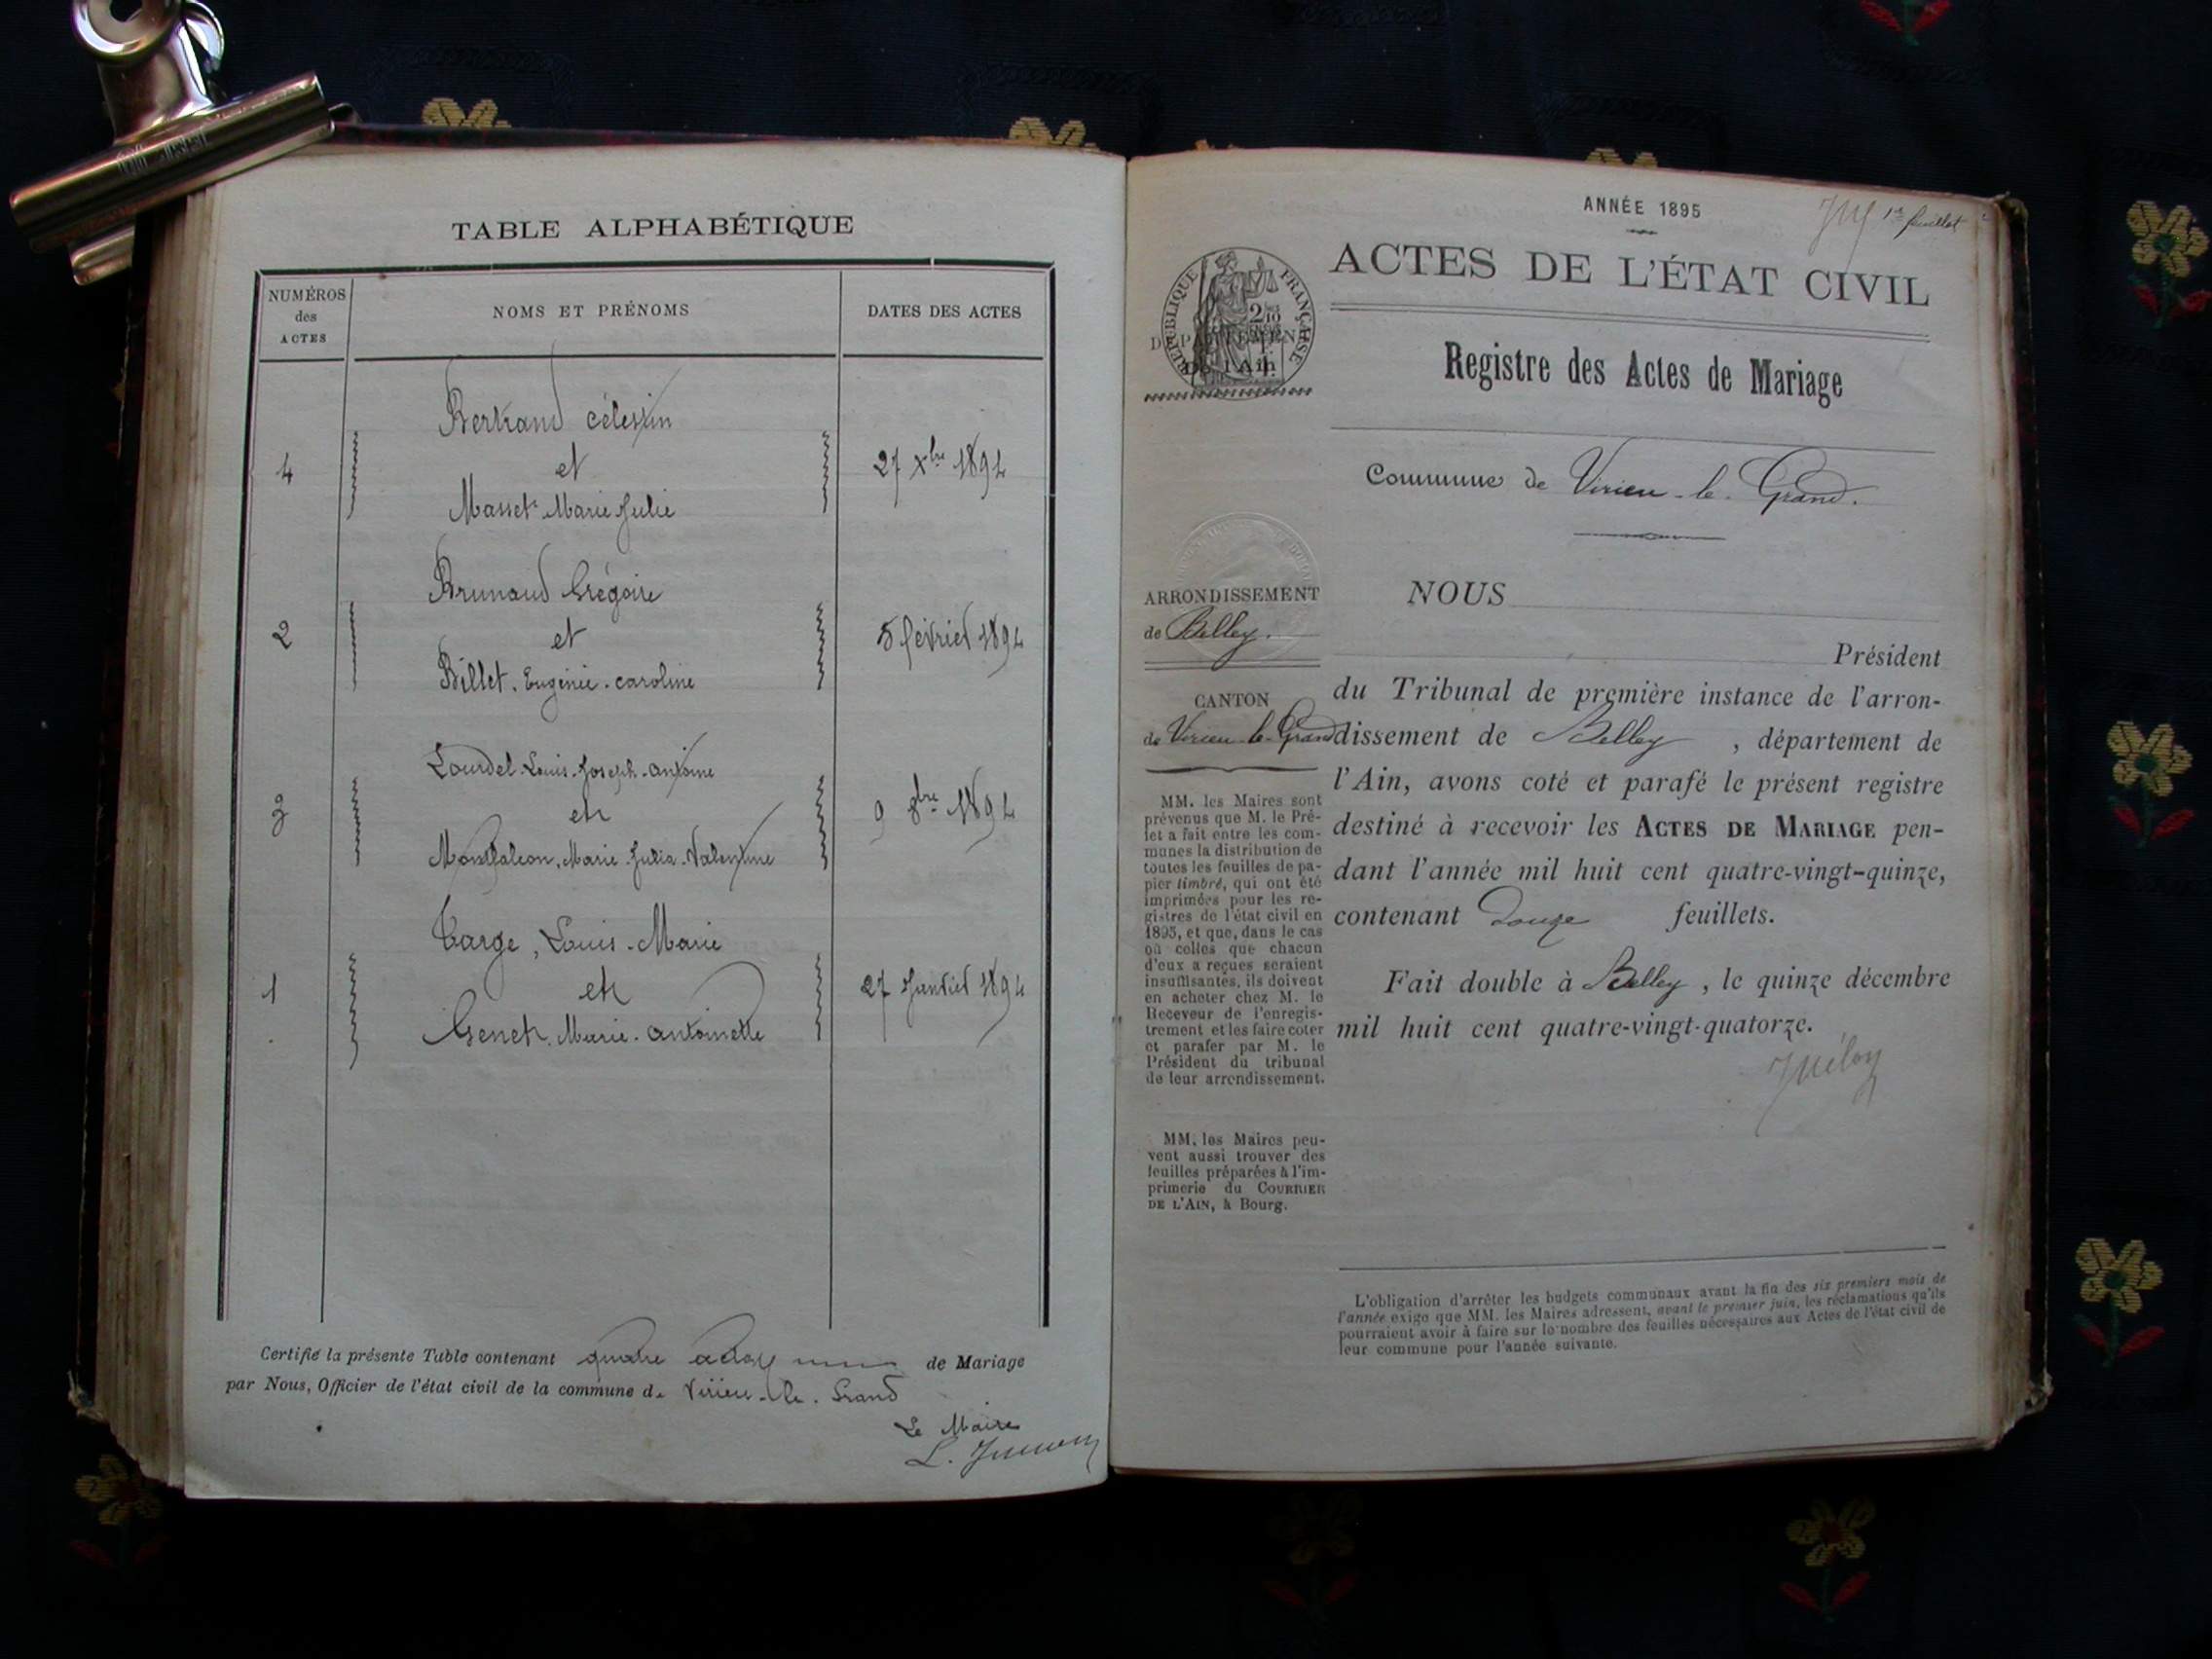 TABLE ALPHABÉTIQUE
NUMÉROS
des
ACTES
NOMS ET PRÉNOMS
DATES DES ACTES
Bertrand Célestin
4 et 27 Xbre 1894
Masset Marie Julie
Brunaud Grégoire
2 et 5 février 1894
Billet. Eugénie. caroline
Lourdel Louis. Joseph. antoine
3 et 9 8bre 1894
Montfalcon. Marie. Julia. Valentine
Targe, Louis-Marie
1 et 27 Janvier 1894
Genet. Marie. antoinette
Certifié la présente Table contenant quatre actes de Mariage
par Nous, Officier de l'état civil de la commune de Virieu-le-Grand
Le Maire
ANNÉE 1895
1er feuillet
ACTES DE L'ÉTAT CIVIL
RÉPUBLIQUE FRANÇAISE
DÉPARTEMENT
De l'Ain
Registre des Actes de Mariage
Commune de Virieu-le-Grand.
ARRONDISSEMENT
de Belley.
CANTON
de Virieu-le-Grand
MM. les Maires sont
prévenus que M. le Pré-
fet a fait entre les com-
munes la distribution de
toutes les feuilles de pa-
pier timbré, qui ont été
imprimées pour les re-
gistres de l'état civil en
1895, et que, dans le cas
où celles que chacun
d'eux a reçues seraient
insuffisantes, ils doivent
en acheter chez M. le
Receveur de l'enregis-
trement et les faire coter
et parafer par M. le
Président du tribunal
de leur arrondissement.
MM. les Maires peu-
vent aussi trouver des
feuilles préparées à l'im-
primerie du COURRIER
DE L'AIN, à Bourg.
NOUS
Président
du Tribunal de première instance de l'arron-
dissement de Belley, département de
l'Ain, avons coté et parafé le présent registre
destiné à recevoir les ACTES DE MARIAGE pen-
dant l'année mil huit cent quatre-vingt-quinze,
contenant Douze feuillets.
Fait double à Belley, le quinze décembre
mil huit cent quatre-vingt-quatorze.
L'obligation d'arrêter les budgets communaux avant la fin des six premiers mois de
l'année exige que MM. les Maires adressent, avant le premier juin, les réclamations qu'ils
pourraient avoir à faire sur le nombre des feuilles nécessaires aux Actes de l'état civil de
leur commune pour l'année suivante.